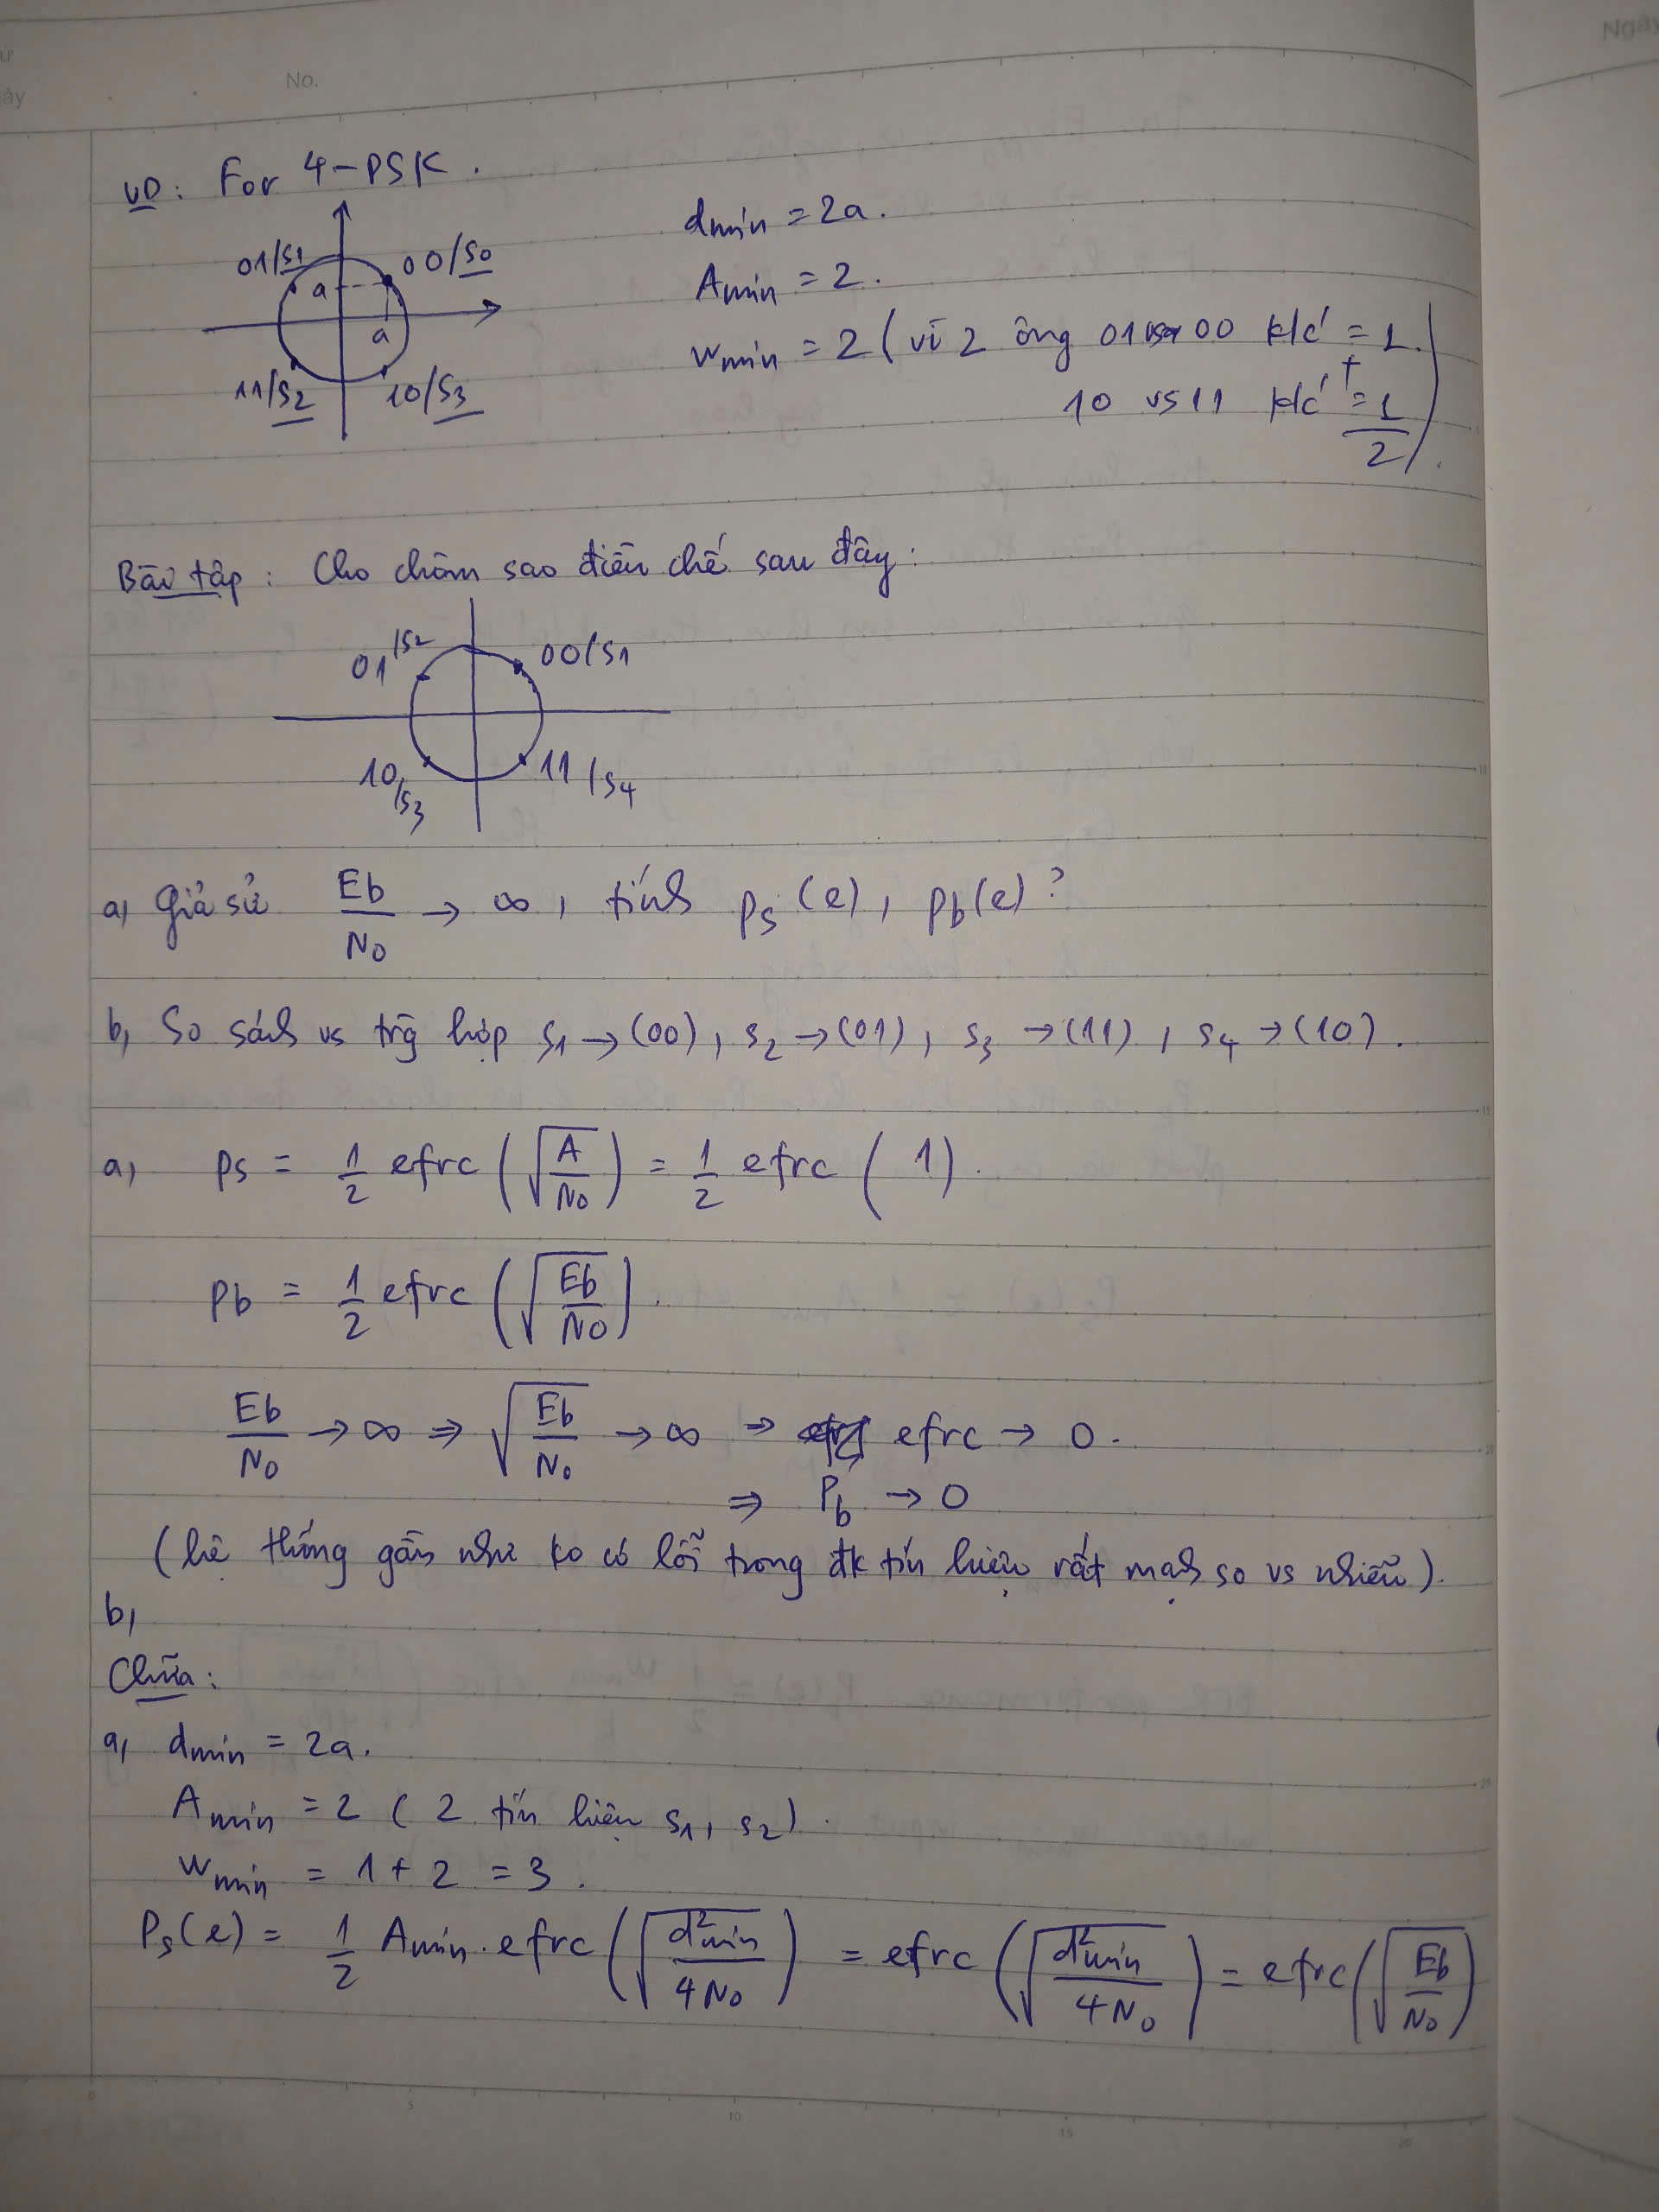 No.
Ngày
VD: For 4-PSK.
01/S1
00/S0
a
a
11/S2
10/S3
dmin = 2a.
Amin = 2.
wmin = 2 (vì 2 ông 01 vs 00 khác = 1
+
10 vs 11 khác = 1
2).
Bài tập: Cho chòm sao điều chế sau đây:
01/S2
00/S1
10/S3
11/S4
a, Giả sử Eb/N0 → ∞, tính ps(e), pb(e)?
b, So sánh vs trg hợp s1 → (00), s2 → (01), s3 → (11), s4 → (10).
a, ps = 1/2 efrc (√(A/N0)) = 1/2 efrc (1).
pb = 1/2 efrc (√(Eb/N0)).
Eb/N0 → ∞ ⇒ √(Eb/N0) → ∞ ⇒ efrc → 0.
⇒ Pb → 0
(hệ thống gần như ko có lỗi trong đk tín hiệu rất mạnh so vs nhiễu).
b,
Chữa:
a, dmin = 2a.
Amin = 2 (2 tín hiệu s1, s2).
wmin = 1 + 2 = 3.
Ps(e) = 1/2 Amin . efrc (√(d²min/4N0)) = efrc (√(d²min/4N0)) = efrc (√(Eb/N0))
0 5 10 15 20